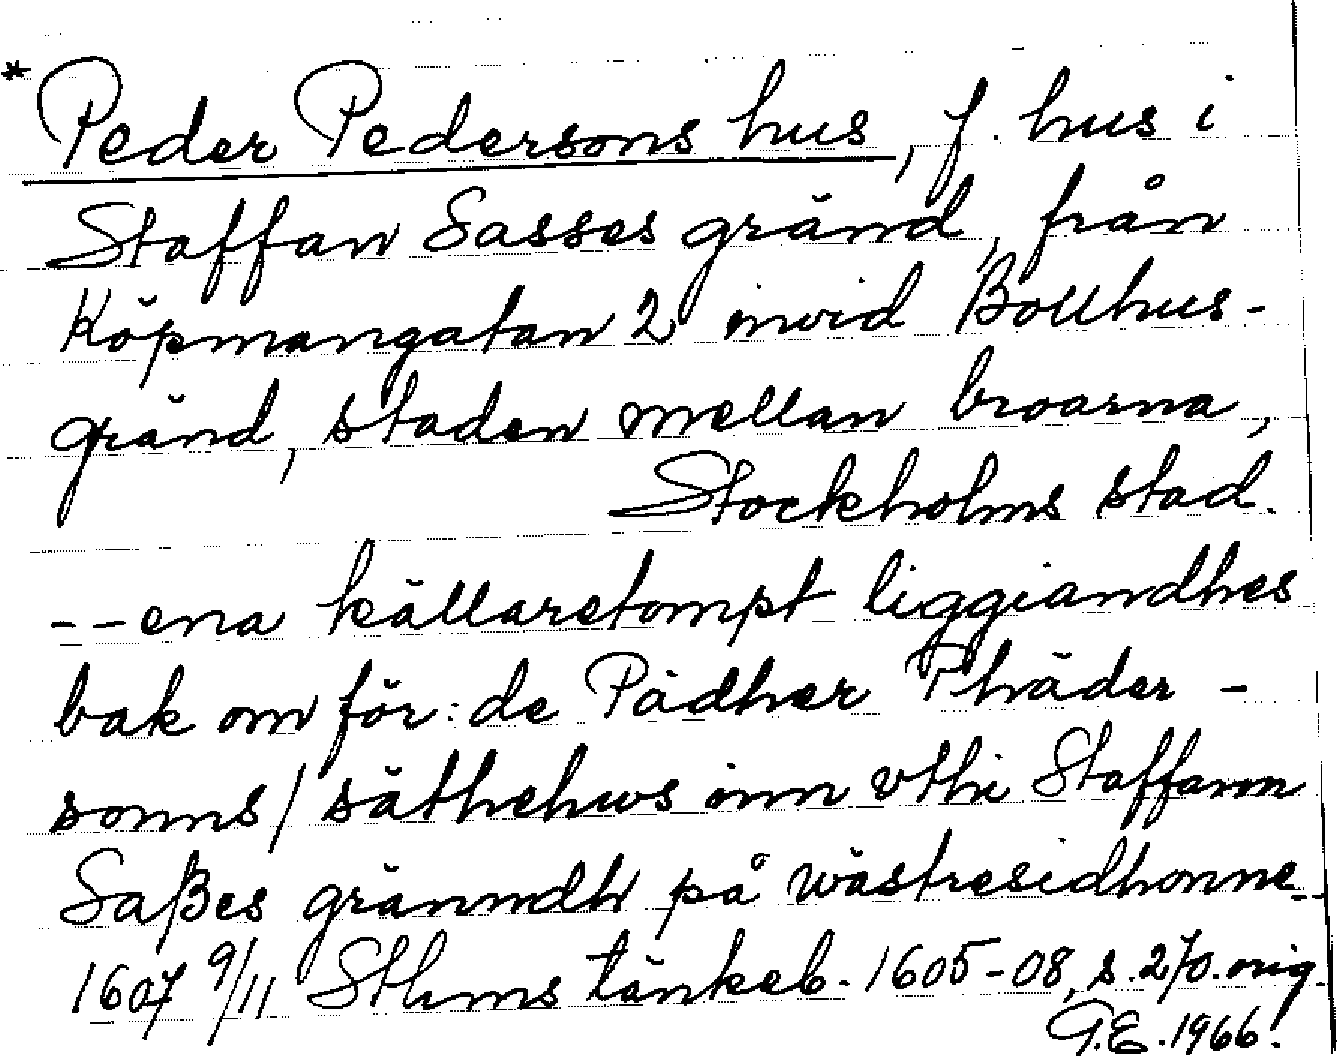 * Peder Pedersons hus, f. hus i
Staffan Sasses gränd, från
Köpmangatan 2 invid Bollhus-
gränd, staden mellan broarna,
Stockholms stad.
--ena källaretompt liggiandhes
bak om för:de Pädher Phäder-
sonns/ säthehws inn vthi Staffann
Saßes gränndh på wästresidhonne--
1607 9/11 Sthms tänkeb. 1605-08, s. 270. orig.
G.E. 1966.